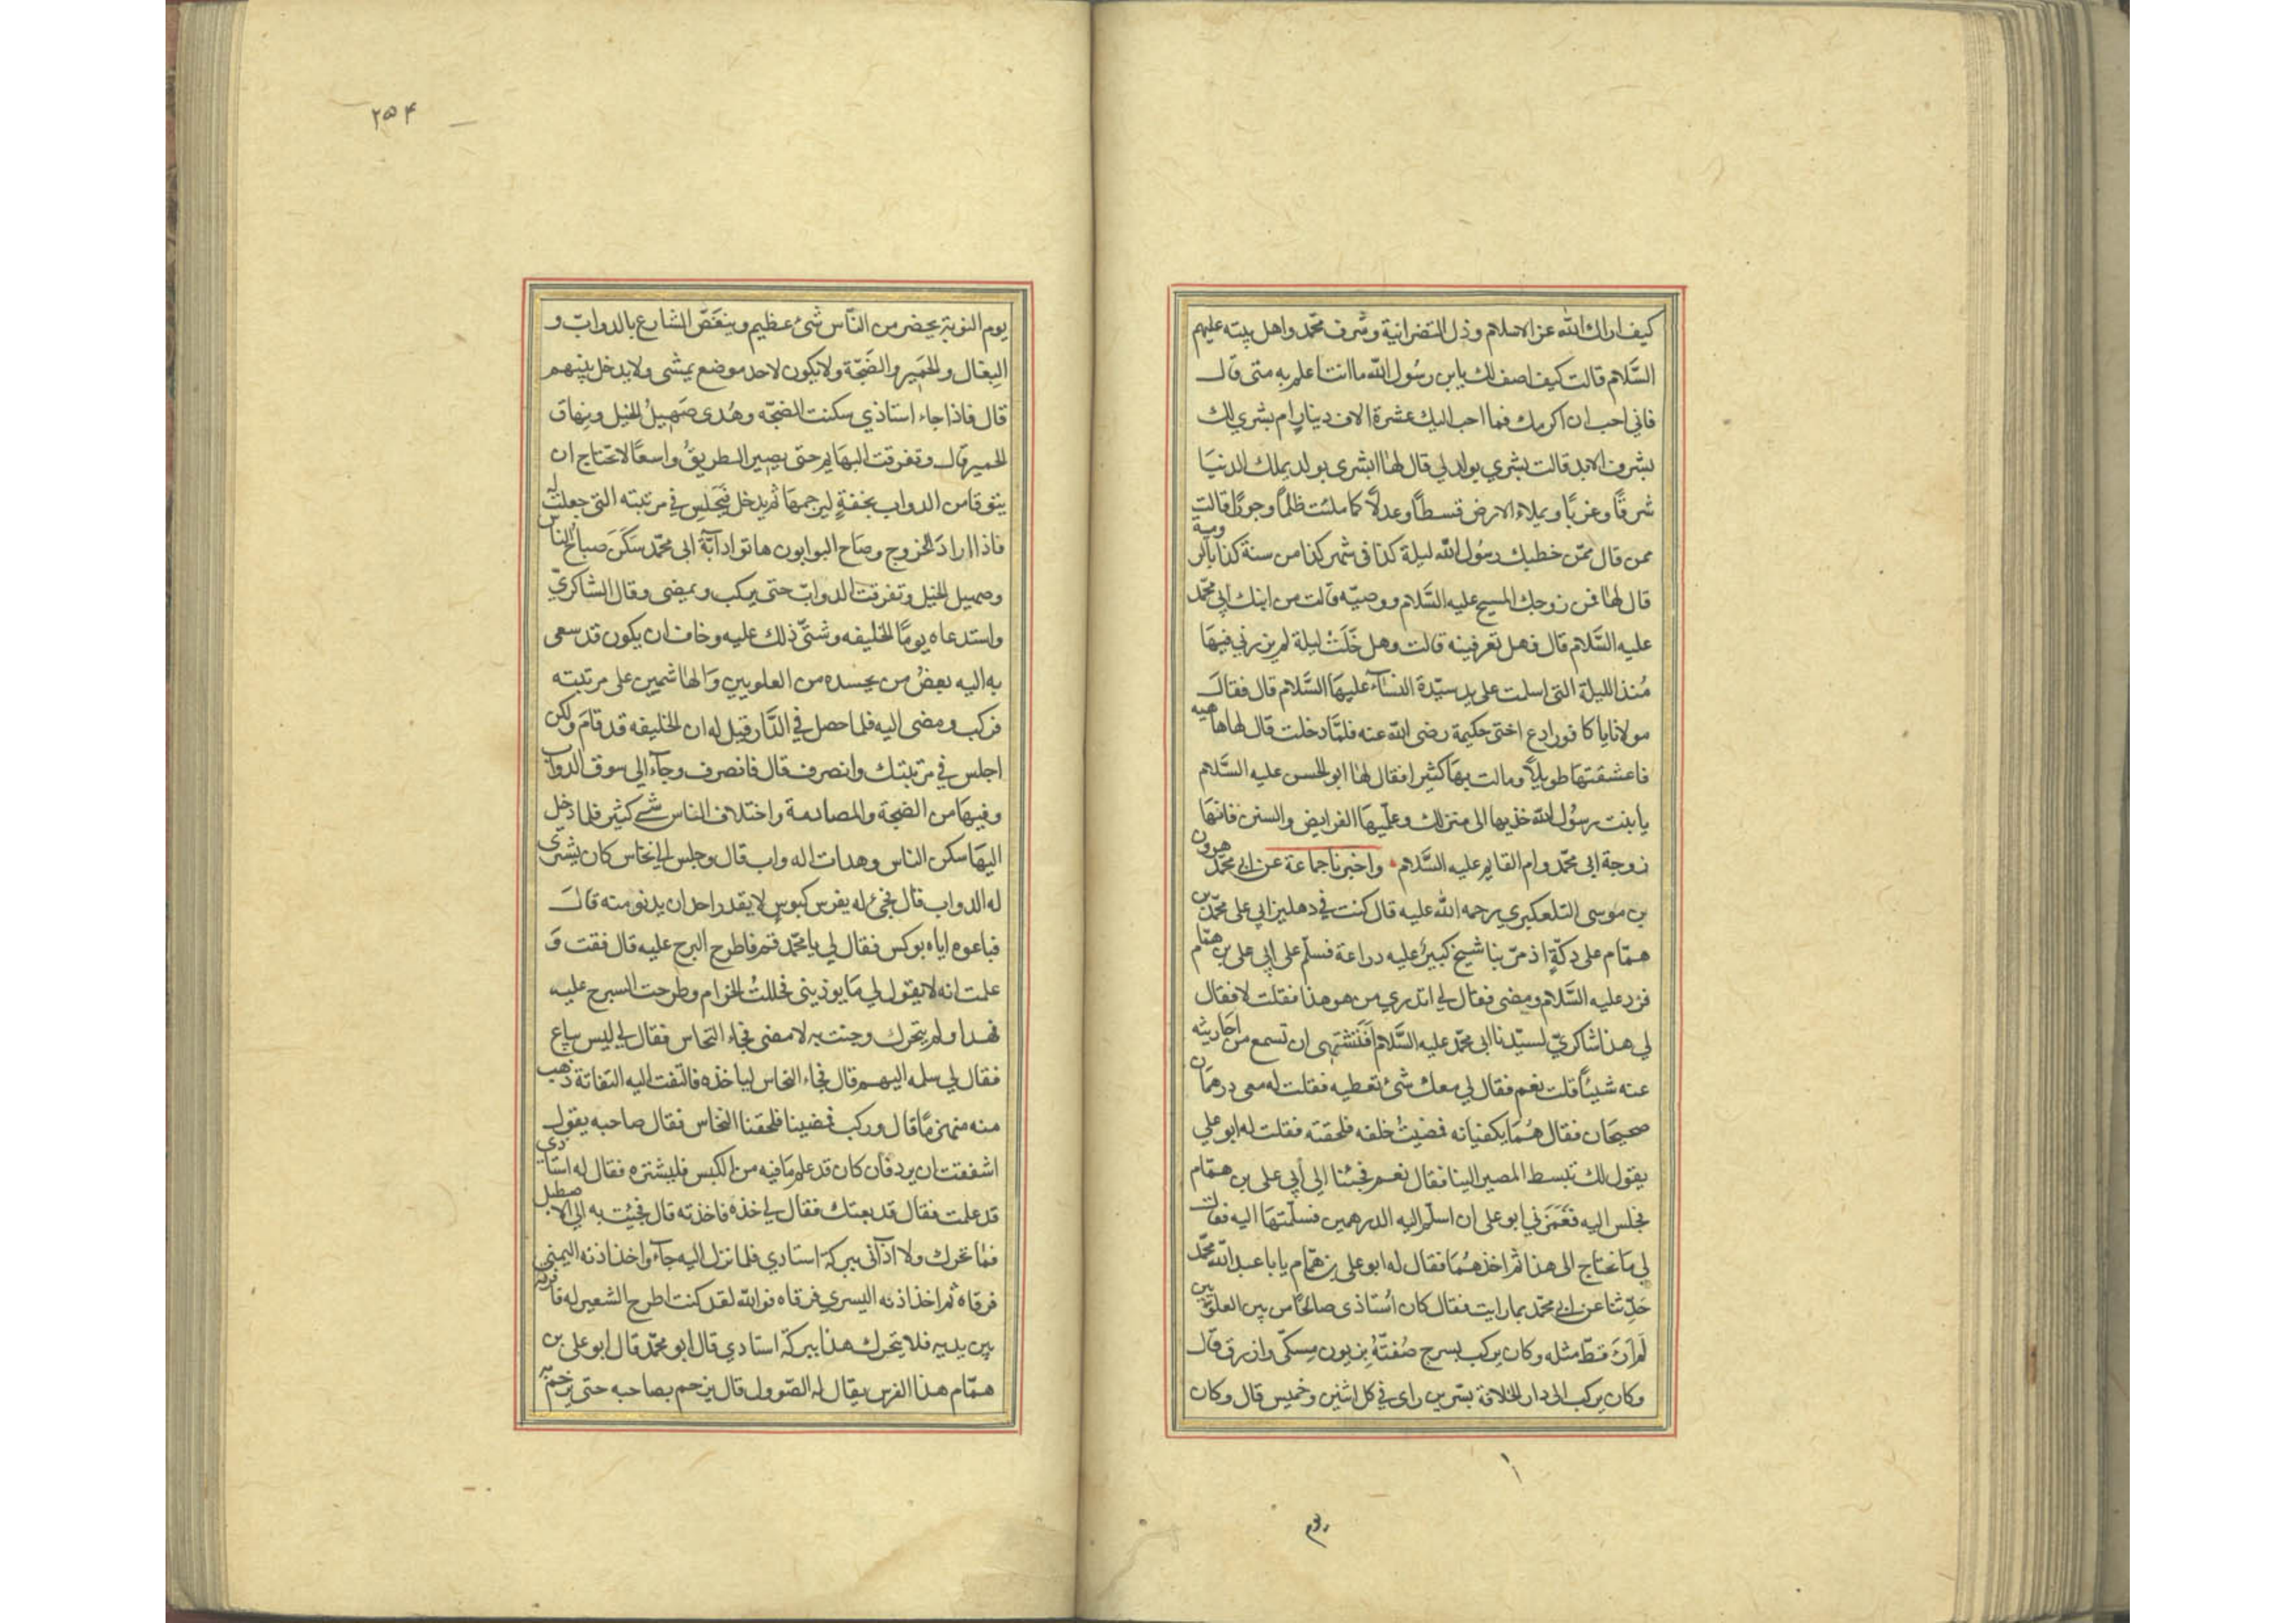 كيف اراك الله عز الاسلام وذل النصرانية وشرف محمّد واهل بيته عليهم
السَّلام قالت كيف اصف لك يابن رسُول الله ما انت اعلم به منى قال
فانى احب ان اكرمك فما احب اليك عشرة الاف دينار ام بشرى لك
بشرف الابد قالت بشرى بولد لى قال لها ابشرى بولد يملك الدنيا
شرقًا وغربًا ويملاء الارض قسطًا وعدلًا كما ملئت ظلمًا وجورًا قالت
ممن قال ممّن خطبك رسُول الله ليلة كذا فى شهر كذا من سنة كذا بالرومية
قال لها فمن زوجك المسيح عليه السَّلام ووصيّه قالت من ابنك ابى محمّد
عليه السَّلام قال فهل تعرفينه قالت وهل خَلَتْ ليلة لم يزرنى فيهَا
مُنذ الليلة التى اسلمت على يد سيّدة النسَآء عليهَا السَّلام قال فقال
مولانا يا كافور ادع اختى حكيمة رضى الله عنه فلمَّا دخلت قال لها هاهيه
فاعتنقتها طويلًا ومالت بهَا كثيرا فقال لها ابو الحسن عليه السَّلام
يا بنت رسُول الله خذيها الى منزلك وعلّميهَا الفرايض والسنن فانهَا
زوجة ابى محمّد وام القايم عليه السَّلام واخبرنا جماعة عن ابى محمّد هرون
بن موسى التلعكبرى رحمه الله عليه قال كنت فى دهليز ابى على محمّد بن
همّام على دكّةٍ اذ مرّ بنا شيخ كبيرٌ عليه دراعة فسلّم على ابى على بن همّام
فرد عليه السَّلام ومضى فقال لى اتدرى من هو هذا فقلت لا فقال
لى هذا شاكرىّ لسيّدنا ابى محمّد عليه السَّلام اَفَتَشْتَهى ان تسمع من احاديثه
عنه شيئًا قلت نعم فقال لى معك شئ تعطيه فقلت له معى درهمان
صحيحان فقال هُمَا يكفيانه فمضيتُ خلفه فلحقته فقلت له ابو على
يقول لك تبسط المصير الينا فقال نعم فجئنا الى أبى على بن همّام
فجلس اليه فغَمَزَنى ابو على ان اسلّم اليه الدرهمين فسلّمتها اليه فقال
لى مَا تحتاج الى هذا ثم اخذهُمَا فقال له ابو على بن همّام يا با عبد الله محمّد
حَدِّثنا عن ابى محمّد بما رايت فقال كان اُستاذى صالحًا من بين العلويين
لَم اَرَ قطّ مثله وكان يركب بسرج صُفتّهُ بزيون مِسكّى وازرق قال
وكان يركب الى دار الخلافة بسّر من راى فى كل اثنين وخميس قال وكان
١
يوم
٢٥۴
يوم النوبة يحضر من النّاس شئ عظيم ويغصّ الشارع بالدوابّ و
البغال والحَمير والضَجّة ولا يكون لاحد موضع يمشى ولا يدخل بينهم
قال فاذا جاء استاذي سكنت الضجّه وهُدى صَهيلُ الخيل ونِهاق
الحمير قال وتفرقت البهَايم حتى يصير الطريقُ واسعًا لا تحتاج ان
يتوقا من الدواب بخفةٍ ليزحمهَا ثم يدخل فيَجلِس فى مرتبته التى جعلت له
فاذا ارادَ الخروج وصَاح البوابون هاتوا دابّة ابى محمّد سَكَنَ صياح الناس
وصهيل الخيل وتفرقت الدوابّ حتى يركب ويمضى وقال الشاكرىّ
واستدعاه يومًا الخليفه وشقّ ذلك عليه وخاف ان يكون قد سعى
به اليه بعضُ من يحسده من العلويين وَالهاشمين على مرتبته
فركب ومضى اليه فلما حصل فى الدَّار قيل له ان الخليفه قد قامَ ولكن
اجلس فى مرتبتك وانصرف قال فانصرف وجآء الى سوق الدواب
وفيهَا من الضجة والمصادمة واختلاف الناس شئ كثير فلما دخل
اليهَا سكن الناس وهدات الدواب قال وجلس الى نخاس كان يشترى
له الدواب قال فجئ له بفرس كبوسٍ لا يقدر احد ان يدنو منه قالَ
فباعوه اياه بوكس فقال لى يا محمّد قم فاطرح السرج عليه قال فقمت وَ
علمت انه لا يقول لى مَا يوذينى فحللتُ الحزام وطرحت السرج عليه
فهدا ولم يتحرك وجئت به لامضى فجاء النحاس فقال لى ليس يباع
فقال لى سلمه اليهم قال فجاء النخاس لياخذه فالتفت اليه التفاتة ذهب
منه منهزمًا قال وركب فمضينا فلحقنا النخاس فقال صاحبه يقول
اشفقت ان يرد فان كان قد علم مَا فيه من الكبس فليشتره فقال له استاذى
قد علمت فقال قد بعتك فقال لى خذه فاخذته قال فجيئت به الى الاصطبل
فمَا تحرك ولا اذآنى ببركة استادي فلما نزل اليه جآء واخذ اذنه اليمنى
فرقاه ثم اخذ اذنه اليسرى فرقاه فوالله لقد كنت اطرح الشعير له فافرقه
بين يديه فلا يتحرك هذا ببركة استادي قال ابو محمّد قال ابو على بن
همّام هذا الفرس يقال له الصّوول قال يزحم بصاحبه حتى يزحمه